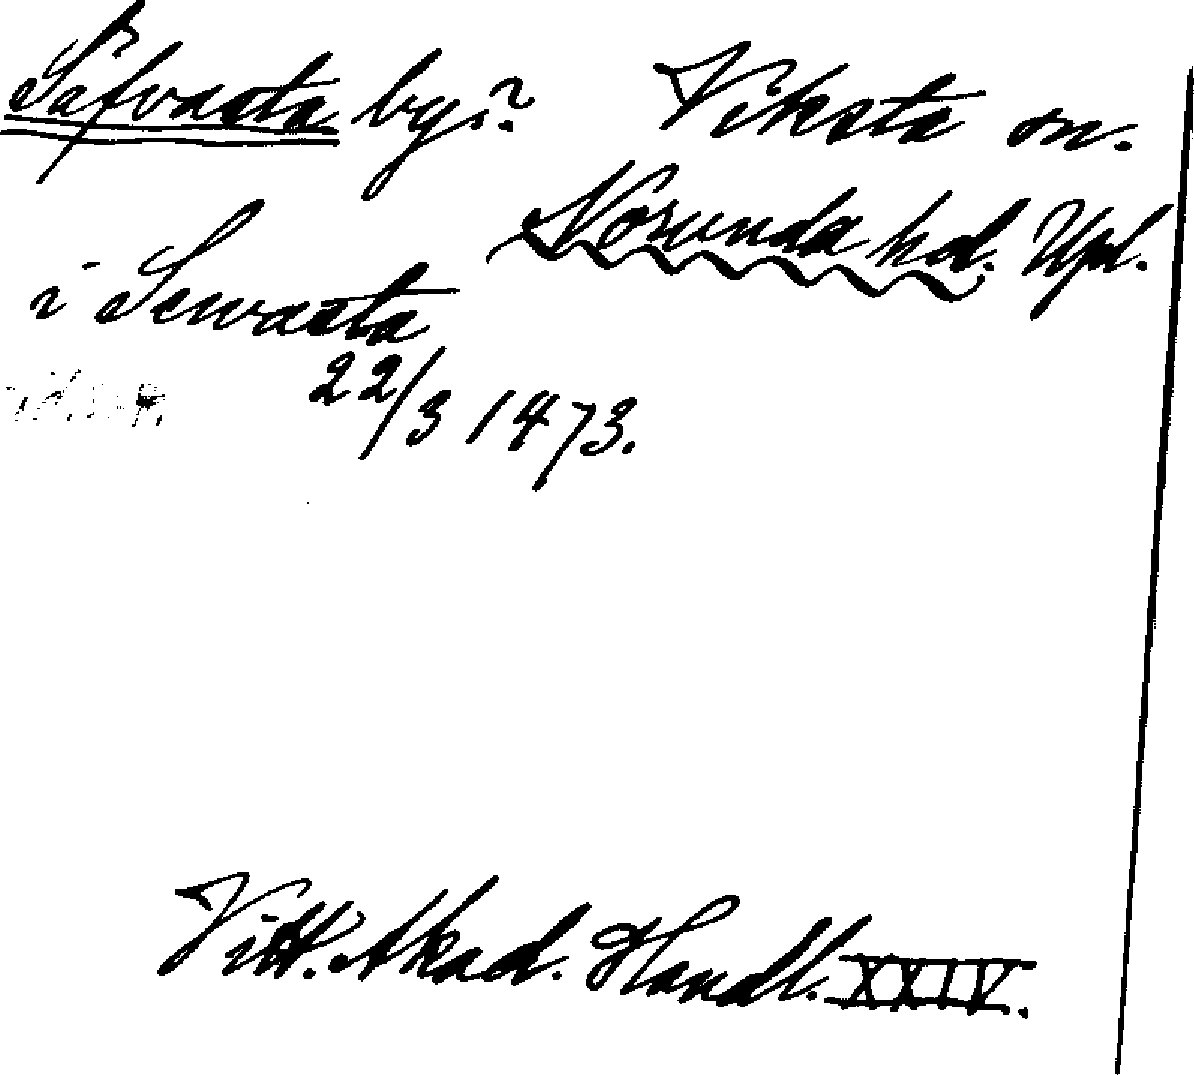 Säfvasta by? Viksta sn.
Norunda hd. Upl.
i Sewasta
22/3 1473.
Vitt. Akad. Handl. XXIV.